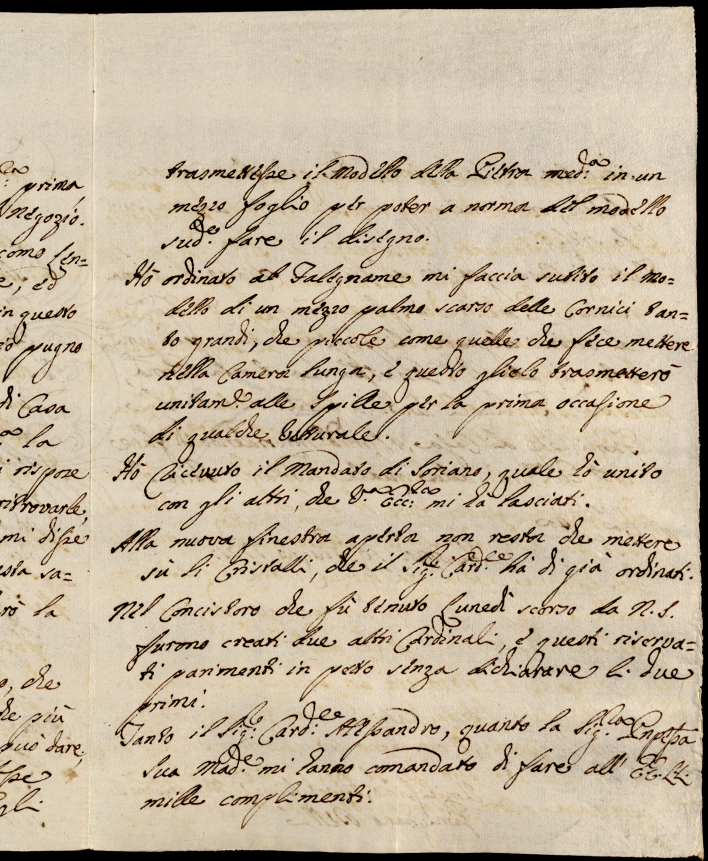 trasmettesse il modello della Pietra med:ª in un
mezzo foglio per poter a norma del modello
sud:º fare il disegno.
Hò ordinato al Falegname mi faccia subito il mo=
dello di un mezzo palmo scarso delle Cornici tan=
to grandi, che piccole come quelle che fece mettere
nella Camera lunga, e questo glielo trasmetterò
unitam:e alle Spille per la prima occasione
di qualche Vetturale.
Hò ricevuto il Mandato di Soriano, quale hò unito
con gli altri, che V:ª Ecc:za mi hà lasciati.
Alla nuova finestra aperta non resta che mettere
sù li Cristalli, che il Sig:e Card:e hà di già ordinati.
Nel Concistoro che fù tenuto Lunedì scorso da N. S.
furono creati due altri Cardinali, e questi riserva=
ti parimenti in petto senza dichiarare li due
primi.
Tanto il Sig:e Card:le Alessandro, quanto la Sig:ra Pnpssa
Sua Mad:e mi hanno comandato di fare all' EE. LL.
mille complimenti.
prima
Negozio.
come sen=
e, ed
in questo
pugno
di Casa
la
rispose
ritrovarle,
mi disse
sta sa=
rò la
o, che
che più
può dare,
sse
egli